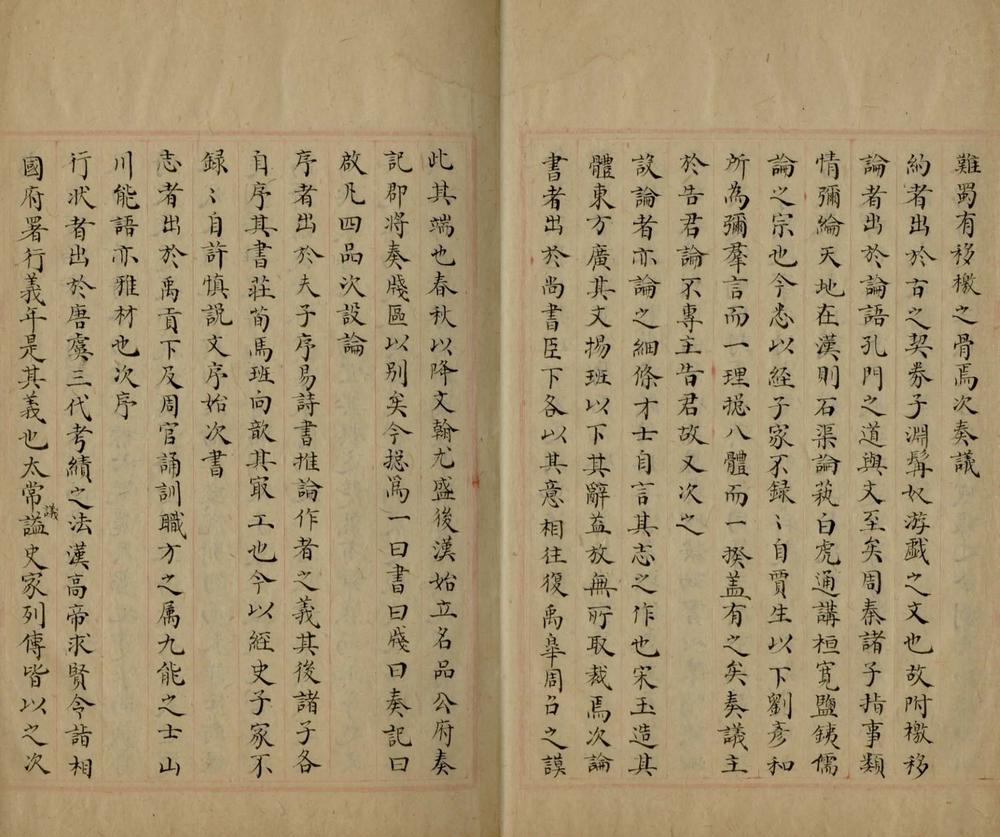 難蜀有移檄之骨焉次奏議
約者出於古之契券子淵髯奴游戲之文也故附檄移
論者出於論語孔門之道與文至矣周秦諸子指事類
情彌綸天地在漢則石渠論蓺白虎通講桓寬鹽銕儒
論之宗也今悉以經子家不録〻自賈生以下劉彥和
所為彌羣言而一理摠八體而一揆盖有之矣奏議主
於告君論不專主告君故又次之
設論者亦論之細條才士自言其志之作也宋玉造其
體東方廣其文揚班以下其辭益放無所取裁焉次論
書者出於尚書臣下各以其意相往復禹皋周召之謨
此其端也春秋以降文翰尤盛後漢始立名品公府奏
記郡將奏牋區以别矣今摠爲一曰書曰牋曰奏記曰
啟凡四品次設論
序者出於夫子序易詩書推論作者之義其後諸子各
自序其書莊荀馬班向歆其㝡工也今以經史子家不
録〻自許慎説文序始次書
志者出於禹貢下及周官誦訓職方之属九能之士山
川能語亦雅材也次序
行状者出於唐虞三代考績之法漢高帝求賢令詣相
國府署行義年是其義也太常議謚史家列傳皆以之次